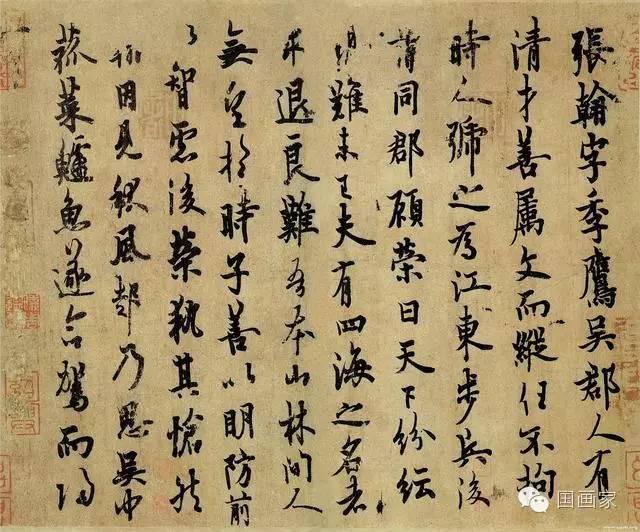 張翰字季鷹吳郡人有
清才善属文而縱任不拘
時人號之為江東步兵後
謂同郡顧榮曰天下紛紜
禍難未已夫有四海之名者
求退良難吾本山林間人
無望於時子善以明防前
以智慮後榮執其愴然
翰因見秋風起乃思吳中
菰菜鱸魚遂命駕而歸
国画家